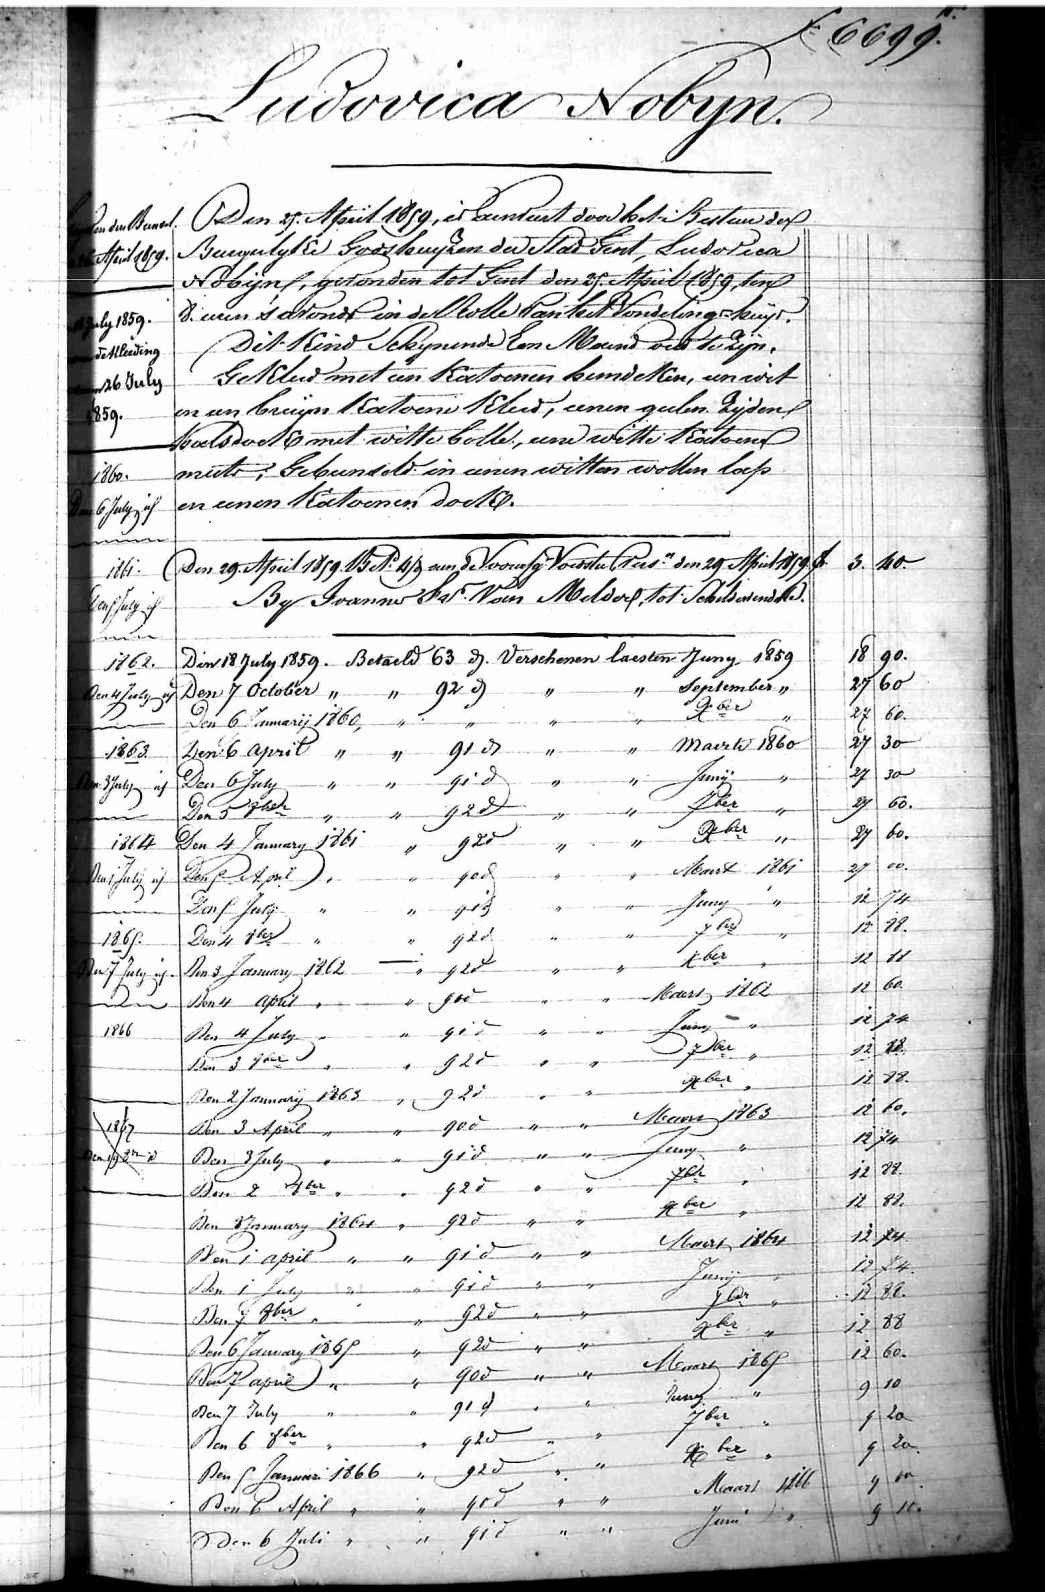 6699.
Ludovica Nobyn.
April 1859.
July 1859.
26 July
1859.
1860.
Den 6 July
1861.
July
1862.
Den 4 July
1863.
Den 3 July
1864
July
1865.
Den 7 July
1866
1867
Den 25 April 1859, is door het Bestuer der
Burgerlyke Godshuyzen der Stad Gent, Ludovica
Nobyn, gevonden tot Gent den 25 April 1859, ten
8. uren s'avonds in de Rolle van het Vondeling-huys.
Dit Kind Schynende Een Maend oud te Zyn.
Gekleed met een Katoenen hemdeken, een wit
en een bruyn Katoene Kleed, eenen geelen Zyden
halsdoek met witte bolle, eene witte Katoene
muts, Gebundeld in eenen witten wollen lap
en eenen Katoenen doek.
Den 29 April 1859 aen de Voedster den 29 April 1859 3. 40
By Joannes Van Melder, tot
Den 18 July 1859. Betaeld 63 d. Verschenen laesten Juny 1859 18 90.
Den 7 October " " 92 d " " September " 27 60
Den 6 Januarij 1860, " " " " Xber " 27 60.
Den 6 April " " 91 d " " Maerte 1860 27 30
Den 6 July " " 91 d " " Junij " 27 30
Den 5 8ber " " 92 d " " 7ber " 27 60.
Den 4 January 1861 " 92 d " " Xber " 27 60.
Den 5 April " " 90 d " " Maert 1861 27 00.
Den 5 July " " 91 d " " Juny " 12 74
Den 4 8ber " " 92 d " " 7ber " 12 88.
Den 3 January 1862 " 92 d " " Xber " 12 88
Den 4 April " " 90 d " " Maert 1862 12 60
Den 4 July " " 91 d " " Juny " 12 74
Den 3 8ber " " 92 d " " 7ber " 12 88.
Den 2 Januarij 1863 " 92 d " " Xber " 12 88.
Den 3 April " " 90 d " " Maert 1863 12 60.
Den 3 July " " 91 d " " Juny " 12 74
Den 2 8ber " " 92 d " " 7ber " 12 88
Den January 1864 " 92 d " " Xber " 12 88.
Den 1 April " " 91 d " " Maert 1864 12 74
Den 1 July " " 91 d " " Junij " 12 74.
Den 7 8ber " " 92 d " " 7ber " 12 88.
Den 6 January 1865 " 92 d " " Xber " 12 88
Den 7 April " " 90 d " " Maart 1865 12 60.
Den 7 July " " 91 d " " Juny " 9 10
Den 6 8ber " " 92 d " " 7ber " 9 20
Den 5 Januari 1866 " 92 d " " Xber " 9 20.
Den 6 April " " 90 d " " Maart 9 00.
Den 6 Juli " " 91 d " " Juni " 9 10.